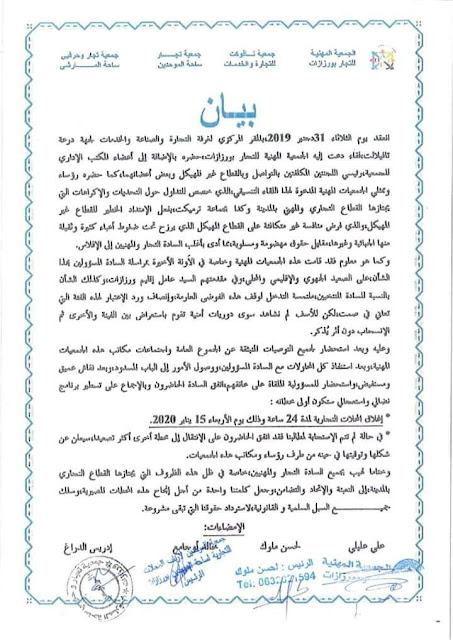 الجمعية المهنية
للتجار بورزازات
جمعية تالوكت
للتجارة والخدمات
جمعية تجار
ساحة الموحدين
جمعية تجار وحرفيي
ساحة المارشي
بيان
انعقد يوم الثلاثاء 31دجنبر 2019،بالمقر المركزي لغرفة التجارة والصناعة والخدمات لجهة درعة
تافيلالت،لقاء دعت إليه الجمعية المهنية للتجار بورزازات،حضره بالإضافة إلى أعضاء المكتب الإداري
للجمعية،رئيسي اللجنتين المكلفتين بالتواصل وبالقطاع غير المهيكل وبعض أعضائهما،كما حضره رؤساء
وممثلي الجمعيات المهنية المدعوة لهذا اللقاء التنسيقي،الذي خصص للتداول حول التحديات والإكراهات التي
يجتازها القطاع التجاري والمهني بالمدينة وكذا بجماعة ترميكت،بفعل الإمتداد الخطير للقطاع غير
المهيكل،والذي فرض منافسة غير متكافئة على القطاع المهيكل الذي يرزح تحت ضغوط أعباء كثيرة وثقيلة
منها الجبائية وغيرها،مقابل حقوق مهضومة ومسلوبة،مما أدى بأغلب السادة التجار والمهنيين إلى الإفلاس.
وكما هو معلوم فقد قامت هذه الجمعيات المهنية وخاصة في الآونة الأخيرة بمراسلة السادة المسؤولين بهذا
الشأن،على الصعيد الجهوي والإقليمي والمحلي،وفي مقدمتهم السيد عامل إقليم ورزازات،وكذلك الشأن
بالنسبة للسادة المنتخبين،ملتمسة التدخل لوقف هذه الفوضى العارمة،وإنصاف ورد الإعتبار لهذه الفئة التي
تعاني في صمت،لكن للأسف لم نشاهد سوى دوريات أمنية تقوم باستعراض بين الفينة والأخرى ثم
الإنسحاب دون أثر يُذكر.
وعليه وبعد استحضار لجميع التوصيات المنبثقة عن الجموع العامة واجتماعات مكاتب هذه الجمعيات
المهنية،وبعد استنفاذ كل المحاولات مع السادة المسؤولين،ووصول الأمور إلى الباب المسدود،وبعد نقاش عميق
ومستفيض،واستحضار للمسؤولية الملقاة على عاتقهم،اتفق السادة الحاضرون وبالإجماع على تسطير برنامج
نضالي واستعجالي ستكون أولى خطاته :
* إغلاق المحلات التجارية لمدة 24 ساعة وذلك يوم الأربعاء 15 يناير 2020.
* في حالة لم تتم الإستجابة لمطالبنا فقد اتفق الحاضرون على الإنتقال إلى خطة أخرى أكثر تصعيدا،سيعلن عن
شكلها وتوقيتها في حينه من طرف رؤساء ومكاتب هذه الجمعيات.
وختاما نهيب بجميع السادة التجار والمهنيين،خاصة في ظل هذه الظروف التي يجتازها القطاع التجاري
بالمدينة،إلى التعبئة والإتحاد والتضامن،وجعل كلمتنا واحدة من أجل إنجاح هذه المحطات المصيرية،وسلك
جميع السبل السلمية و القانونية،لاسترداد حقوقنا التي تبقى مشروعة.
الإمضاءات:
علي عليلي
لحسن ملوك
إدريس الدراع
الجمعية المهنية
الرئيس: لحسن ملوك